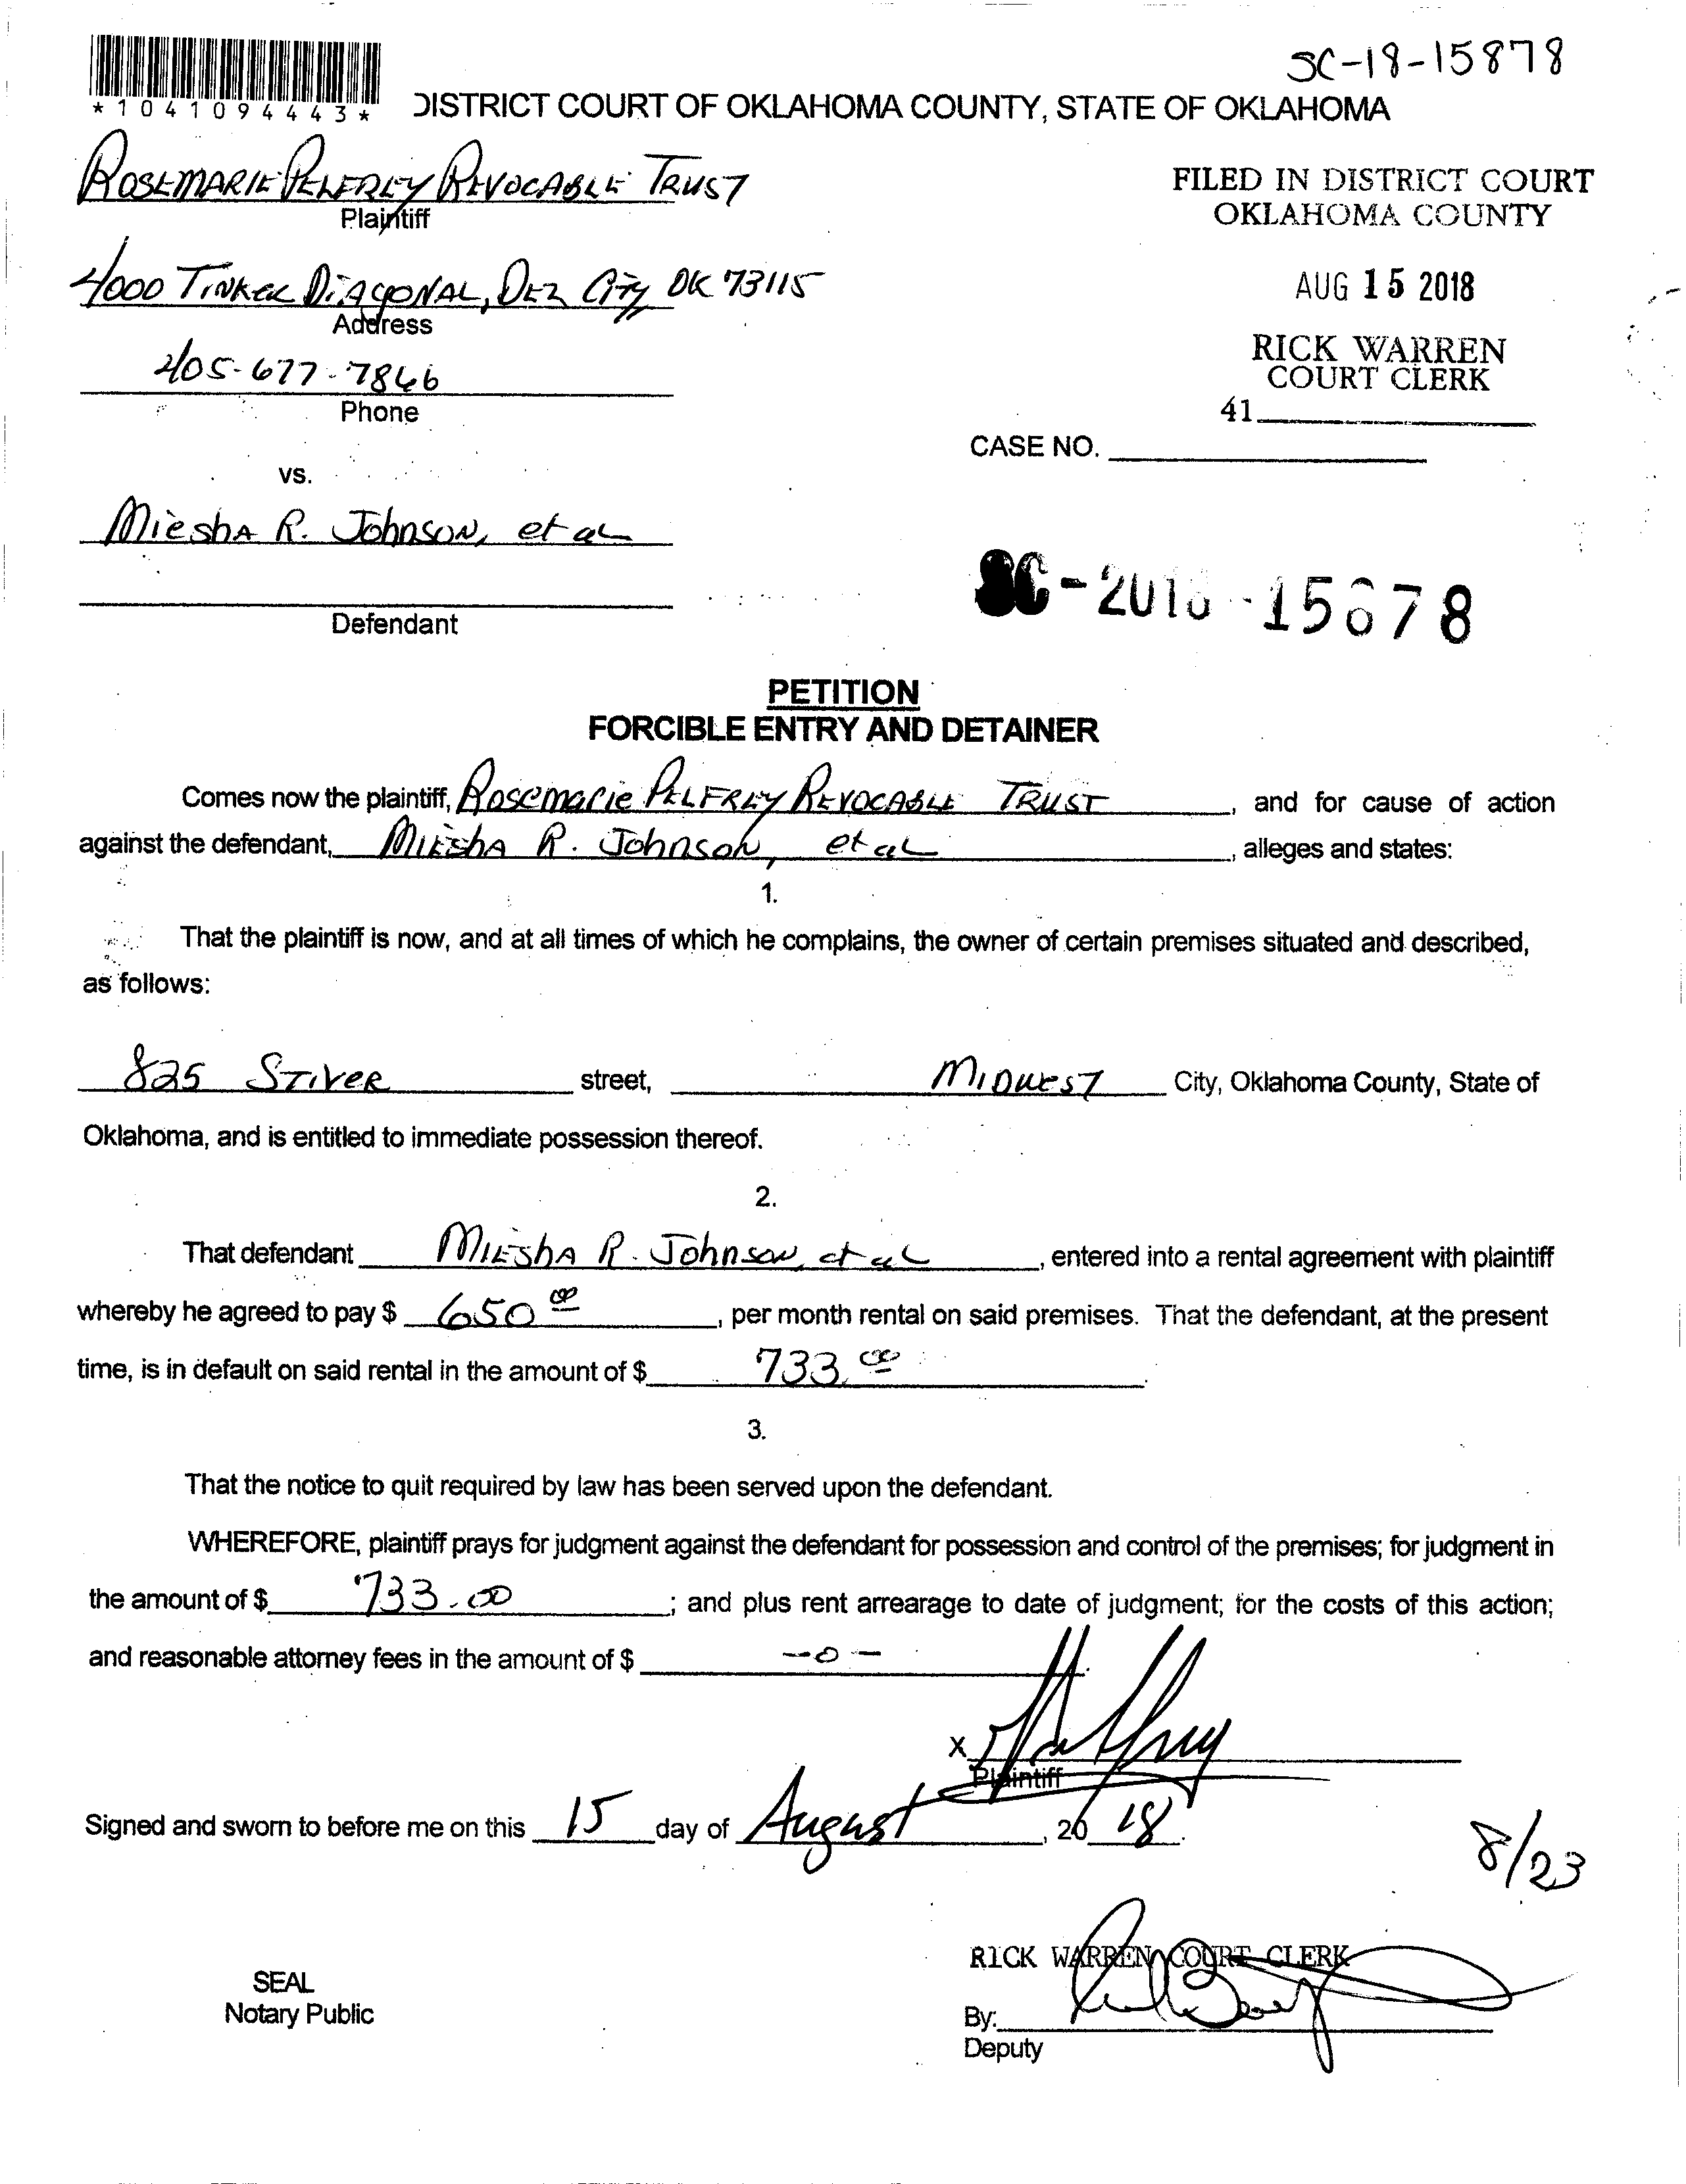 SC-18-15878
*1041094443*
DISTRICT COURT OF OKLAHOMA COUNTY, STATE OF OKLAHOMA
ROSEMARIE PELFREY REVOCABLE TRUST
Plaintiff
FILED IN DISTRICT COURT
OKLAHOMA COUNTY
4000 TINKER DIAGONAL, DEL CITY OK 73115
Address
AUG 15 2018
405-677-7866
Phone
RICK WARREN
COURT CLERK
41
CASE NO.
vs.
Miesha R. Johnson, et al
Defendant
SC-2018-15878
PETITION
FORCIBLE ENTRY AND DETAINER
Comes now the plaintiff, Rosemarie PELFREY REVOCABLE TRUST, and for cause of action
against the defendant, Miesha R. Johnson, et al, alleges and states:
1.
That the plaintiff is now, and at all times of which he complains, the owner of certain premises situated and described,
as follows:
825 STIVER street, MIDWEST City, Oklahoma County, State of
Oklahoma, and is entitled to immediate possession thereof.
2.
That defendant Miesha R. Johnson, et al, entered into a rental agreement with plaintiff
whereby he agreed to pay $ 650 00, per month rental on said premises. That the defendant, at the present
time, is in default on said rental in the amount of $ 733. 00.
3.
That the notice to quit required by law has been served upon the defendant.
WHEREFORE, plaintiff prays for judgment against the defendant for possession and control of the premises; for judgment in
the amount of $ 733.00; and plus rent arrearage to date of judgment; for the costs of this action;
and reasonable attorney fees in the amount of $ -0-.
X
Plaintiff
Signed and sworn to before me on this 15 day of August, 2018.
8/23
RICK WARREN COURT CLERK
SEAL
Notary Public
By:
Deputy